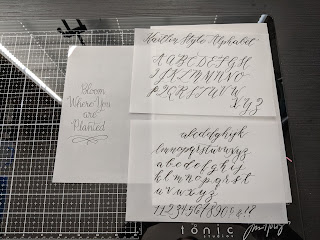 Bloom
Where You
are
Planted
Style Alphabet
A B C D E F G H
I J K L M N O
P Q R S T U V W
X Y Z
abcdefghijk
lmnopqrstuvwxyz
a b c d e f g h i j
k l m n o p q r s t
u v w x y z
1 2 3 4 5 6 7 8 9 0 & ! ?
tonic
STUDIOS